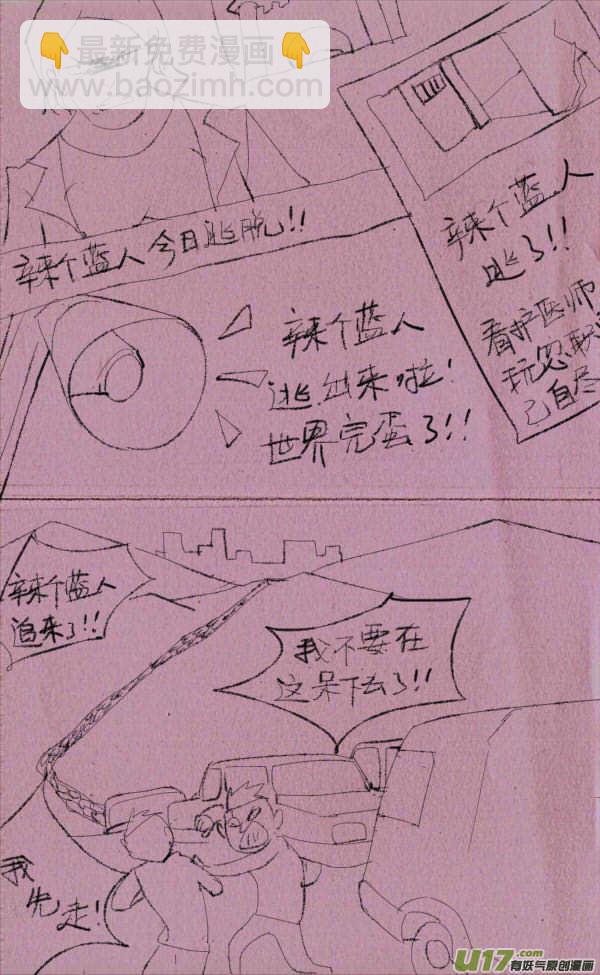 👇最新免费漫画👇
www.baozimh.com
辣个蓝人今日逃脱!!
辣个蓝人
逃了!!
看护医师
玩忽职
己自尽
辣个蓝人
逃出来啦!
世界完蛋了!!
辣个蓝人
追来了!!
我不要在
这呆下去了!!
我
先
走!
U17.com
有妖气原创漫画